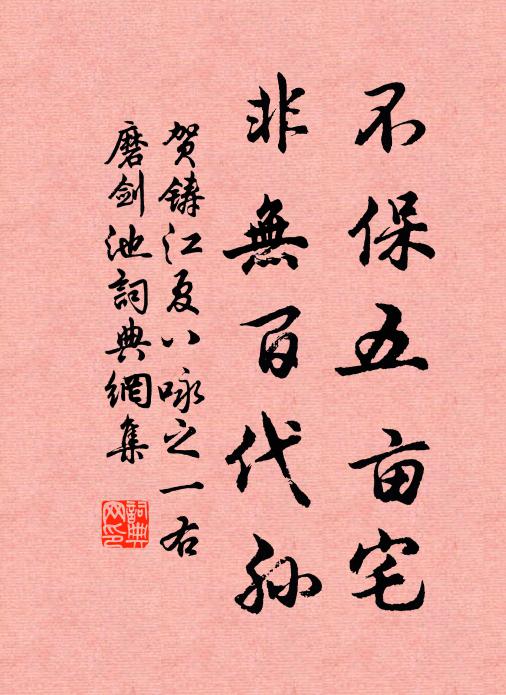 不保五亩宅
非無百代孙
贺铸江夏八咏之一右
磨剑池詞典網集
詞典网印